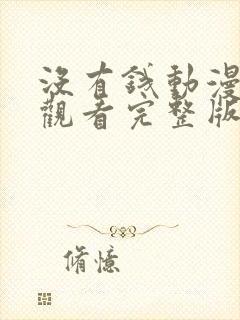 沒有錢動漫
觀看完整版
脩憶